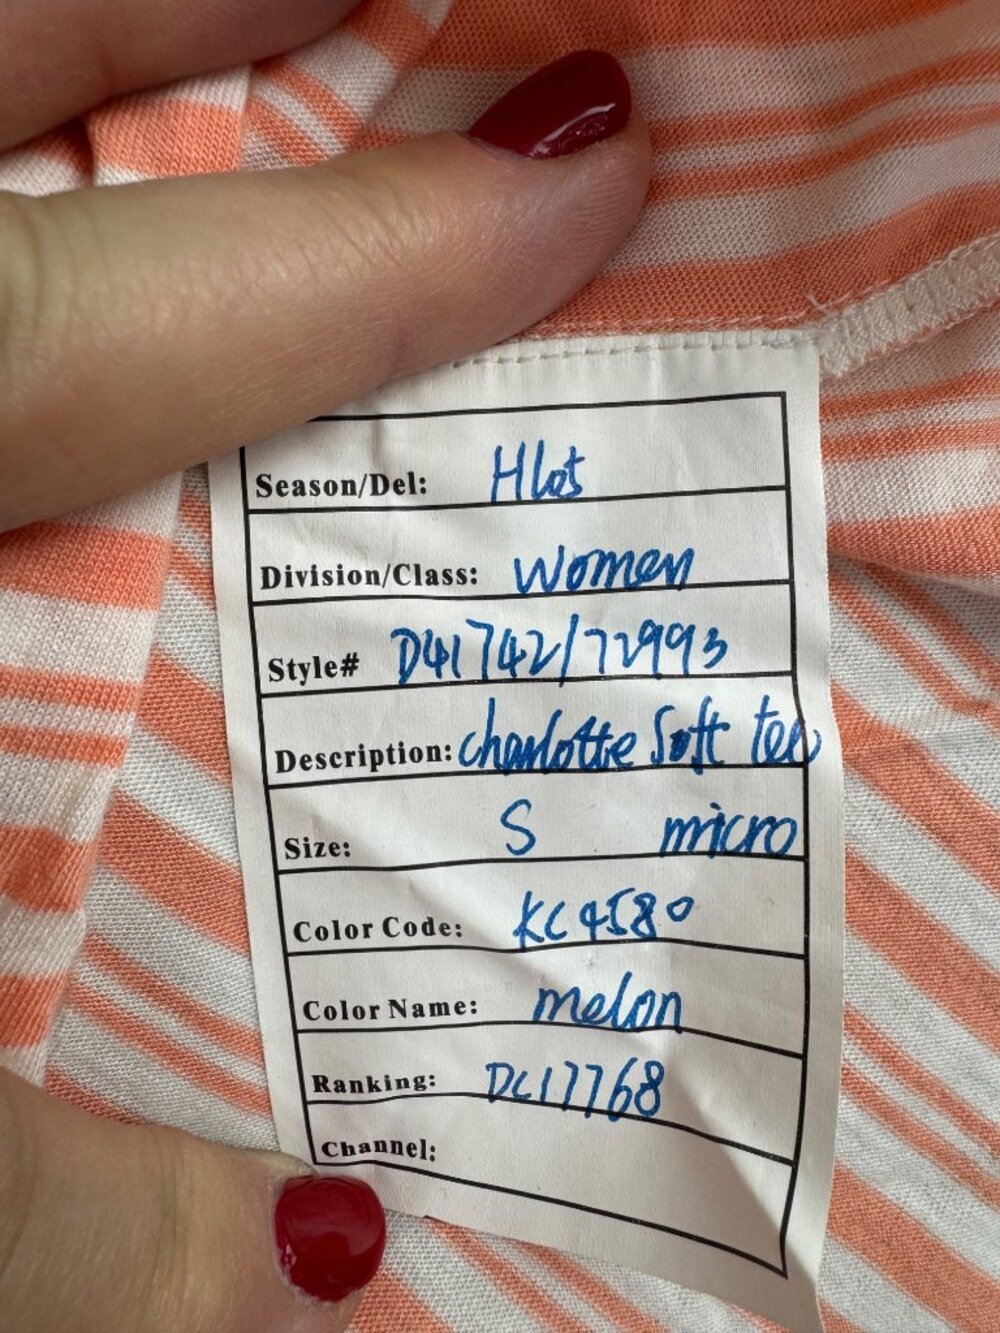 Season/Del:
Division/Class: Women
Style# D41742/72993
Description: charlotte Soft tee
Size: S micro
Color Code: KC4580
Color Name: melon
Ranking: DC17768
Channel: